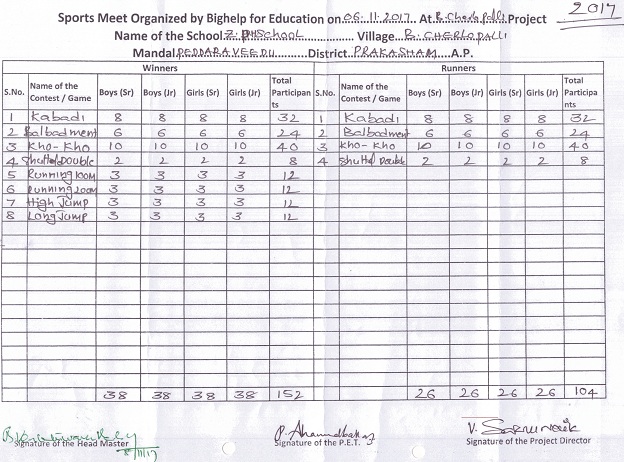 2017
Sports Meet Organized by Bighelp for Education on 06.11.2017 At B.Cherlopalli Project
Name of the School Z.P.H School Village B.CHERLOPALLI
Mandal PEDDARAVEEDU District PRAKASHAM A.P.
Winners Runners
S.No. Name of the Contest / Game Boys (Sr) Boys (Jr) Girls (Sr) Girls (Jr) Total Participants S.No. Name of the Contest / Game Boys (Sr) Boys (Jr) Girls (Sr) Girls (Jr) Total Participants
1 Kabadi 8 8 8 8 32 1 Kabadi 8 8 8 8 32
2 Balbadment 6 6 6 6 24 2 Balbadment 6 6 6 6 24
3 Kho-Kho 10 10 10 10 40 3 Kho-Kho 10 10 10 10 40
4 Shuttel Double 2 2 2 2 8 4 Shuttel Double 2 2 2 2 8
5 Running 100M 3 3 3 3 12
6 Running 200M 3 3 3 3 12
7 High Jump 3 3 3 3 12
8 Long Jump 3 3 3 3 12
38 38 38 38 152 26 26 26 26 104
Signature of the Head Master Signature of the P.E.T. Signature of the Project Director
8/11/17